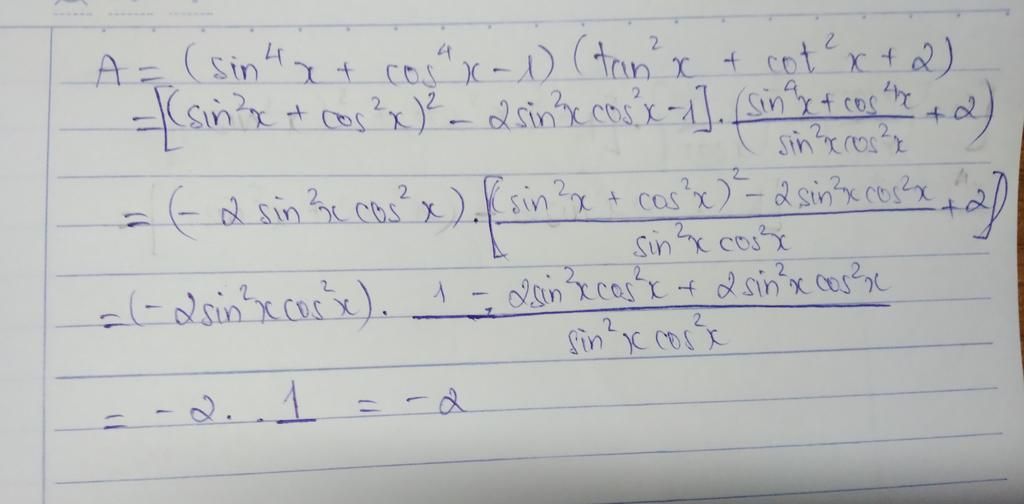 A = (sin⁴x + cos⁴x - 1) (tan²x + cot²x + 2)
= [(sin²x + cos²x)² - 2sin²xcos²x - 1] . ((sin⁴x + cos⁴x)/(sin²xcos²x) + 2)
= (- 2 sin²x cos²x) . [((sin²x + cos²x)² - 2sin²xcos²x)/(sin²x cos²x) + 2]
= (- 2sin²xcos²x) . (1 - 2sin²xcos²x + 2sin²xcos²x)/(sin²x cos²x)
= - 2 . . 1 = - 2